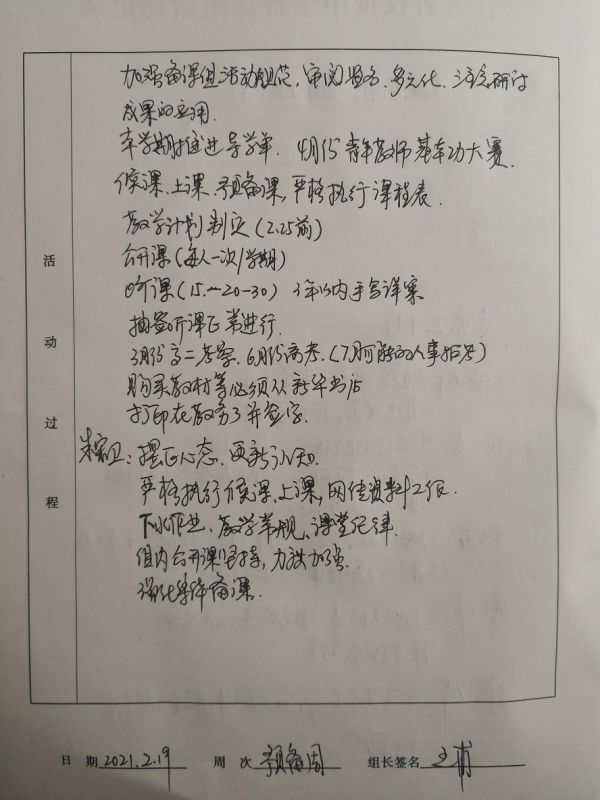 加强备课组活动规范,审阅签名、多元化、注意研讨
成果的应用.
本学期推进导学单. 4月份青年教师基本功大赛.
候课、上课、预备课,严格执行课程表.
教学计划制定(2.25前)
公开课(每人一次/学期)
听课(15.—20-30) 3年以内手写详案
抽签听课正常进行.
3月份高二考学. 6月份高考.(7月可能的人事招考)
购买教材等必须从新华书店
打印在教务了并签字.
卫:摆正心态、更新认知.
严格执行候课、上课,网传资料工作.
下水作业、教学常规、课堂纪律.
组内公开课坚持,力度加强.
强化集体备课.
活动过程
日期 2021.2.19 周次 预备周 组长签名